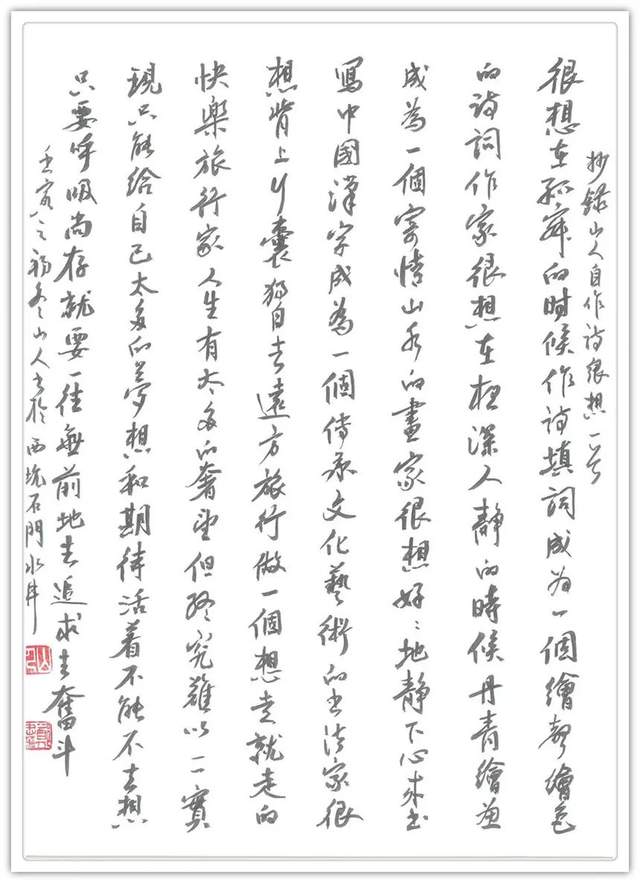 抄録山人自作詩很想一首
很想在孤寂的时候作詩填詞成为一個繪聲繪色
的詩詞作家很想在夜深人靜的時候丹青繪画
成為一個寄情山水的畫家很想好〻地靜下心来书
寫中國漢字成為一個傳承文化藝術的书法家很
想背上行囊獨自去遠方旅行做一個想走就走的
快樂旅行家人生有太多的奢望但終究難以一一實
現只能给自己太多的夢想和期待活着不能不去想
只要呼吸尚存就要一往無前地去追求去奮斗
壬寅之初冬山人书於西坑石門水井